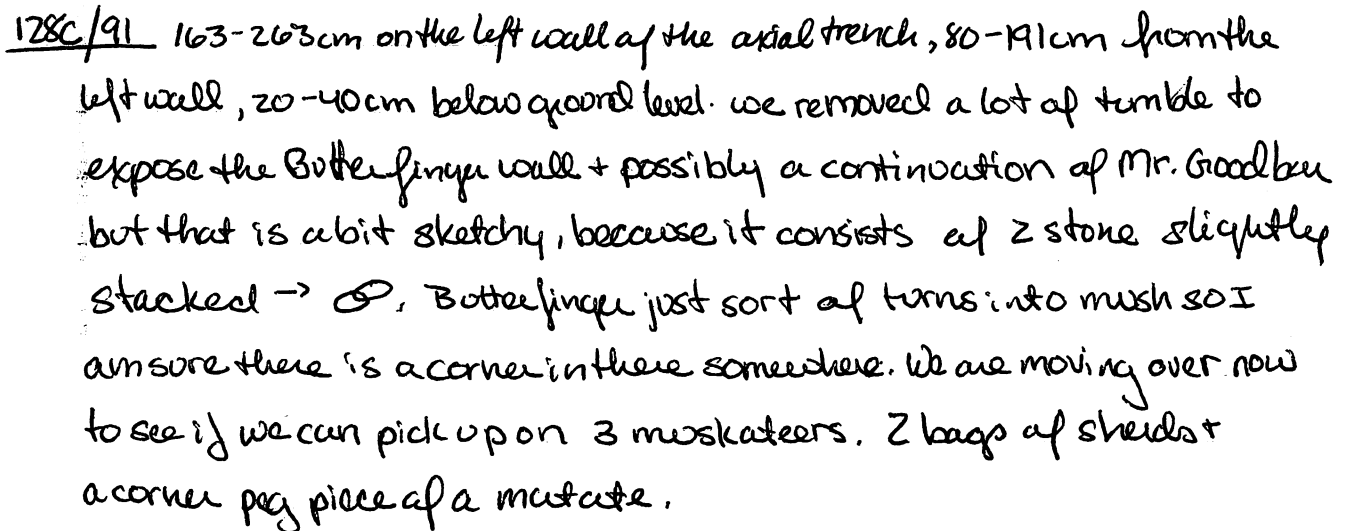 128C/91 163-263cm on the left wall of the axial trench, 80-191cm from the
left wall, 20-40cm below ground level. we removed a lot of tumble to
expose the Butterfinger wall + possibly a continuation of Mr. Goodbar
but that is a bit sketchy, because it consists of 2 stone slightly
stacked → . Butterfinger just sort of turns into mush so I
am sure there is a corner in there somewhere. We are moving over now
to see if we can pick up on 3 muskateers. 2 bags of sherds +
a corner peg piece of a matate.